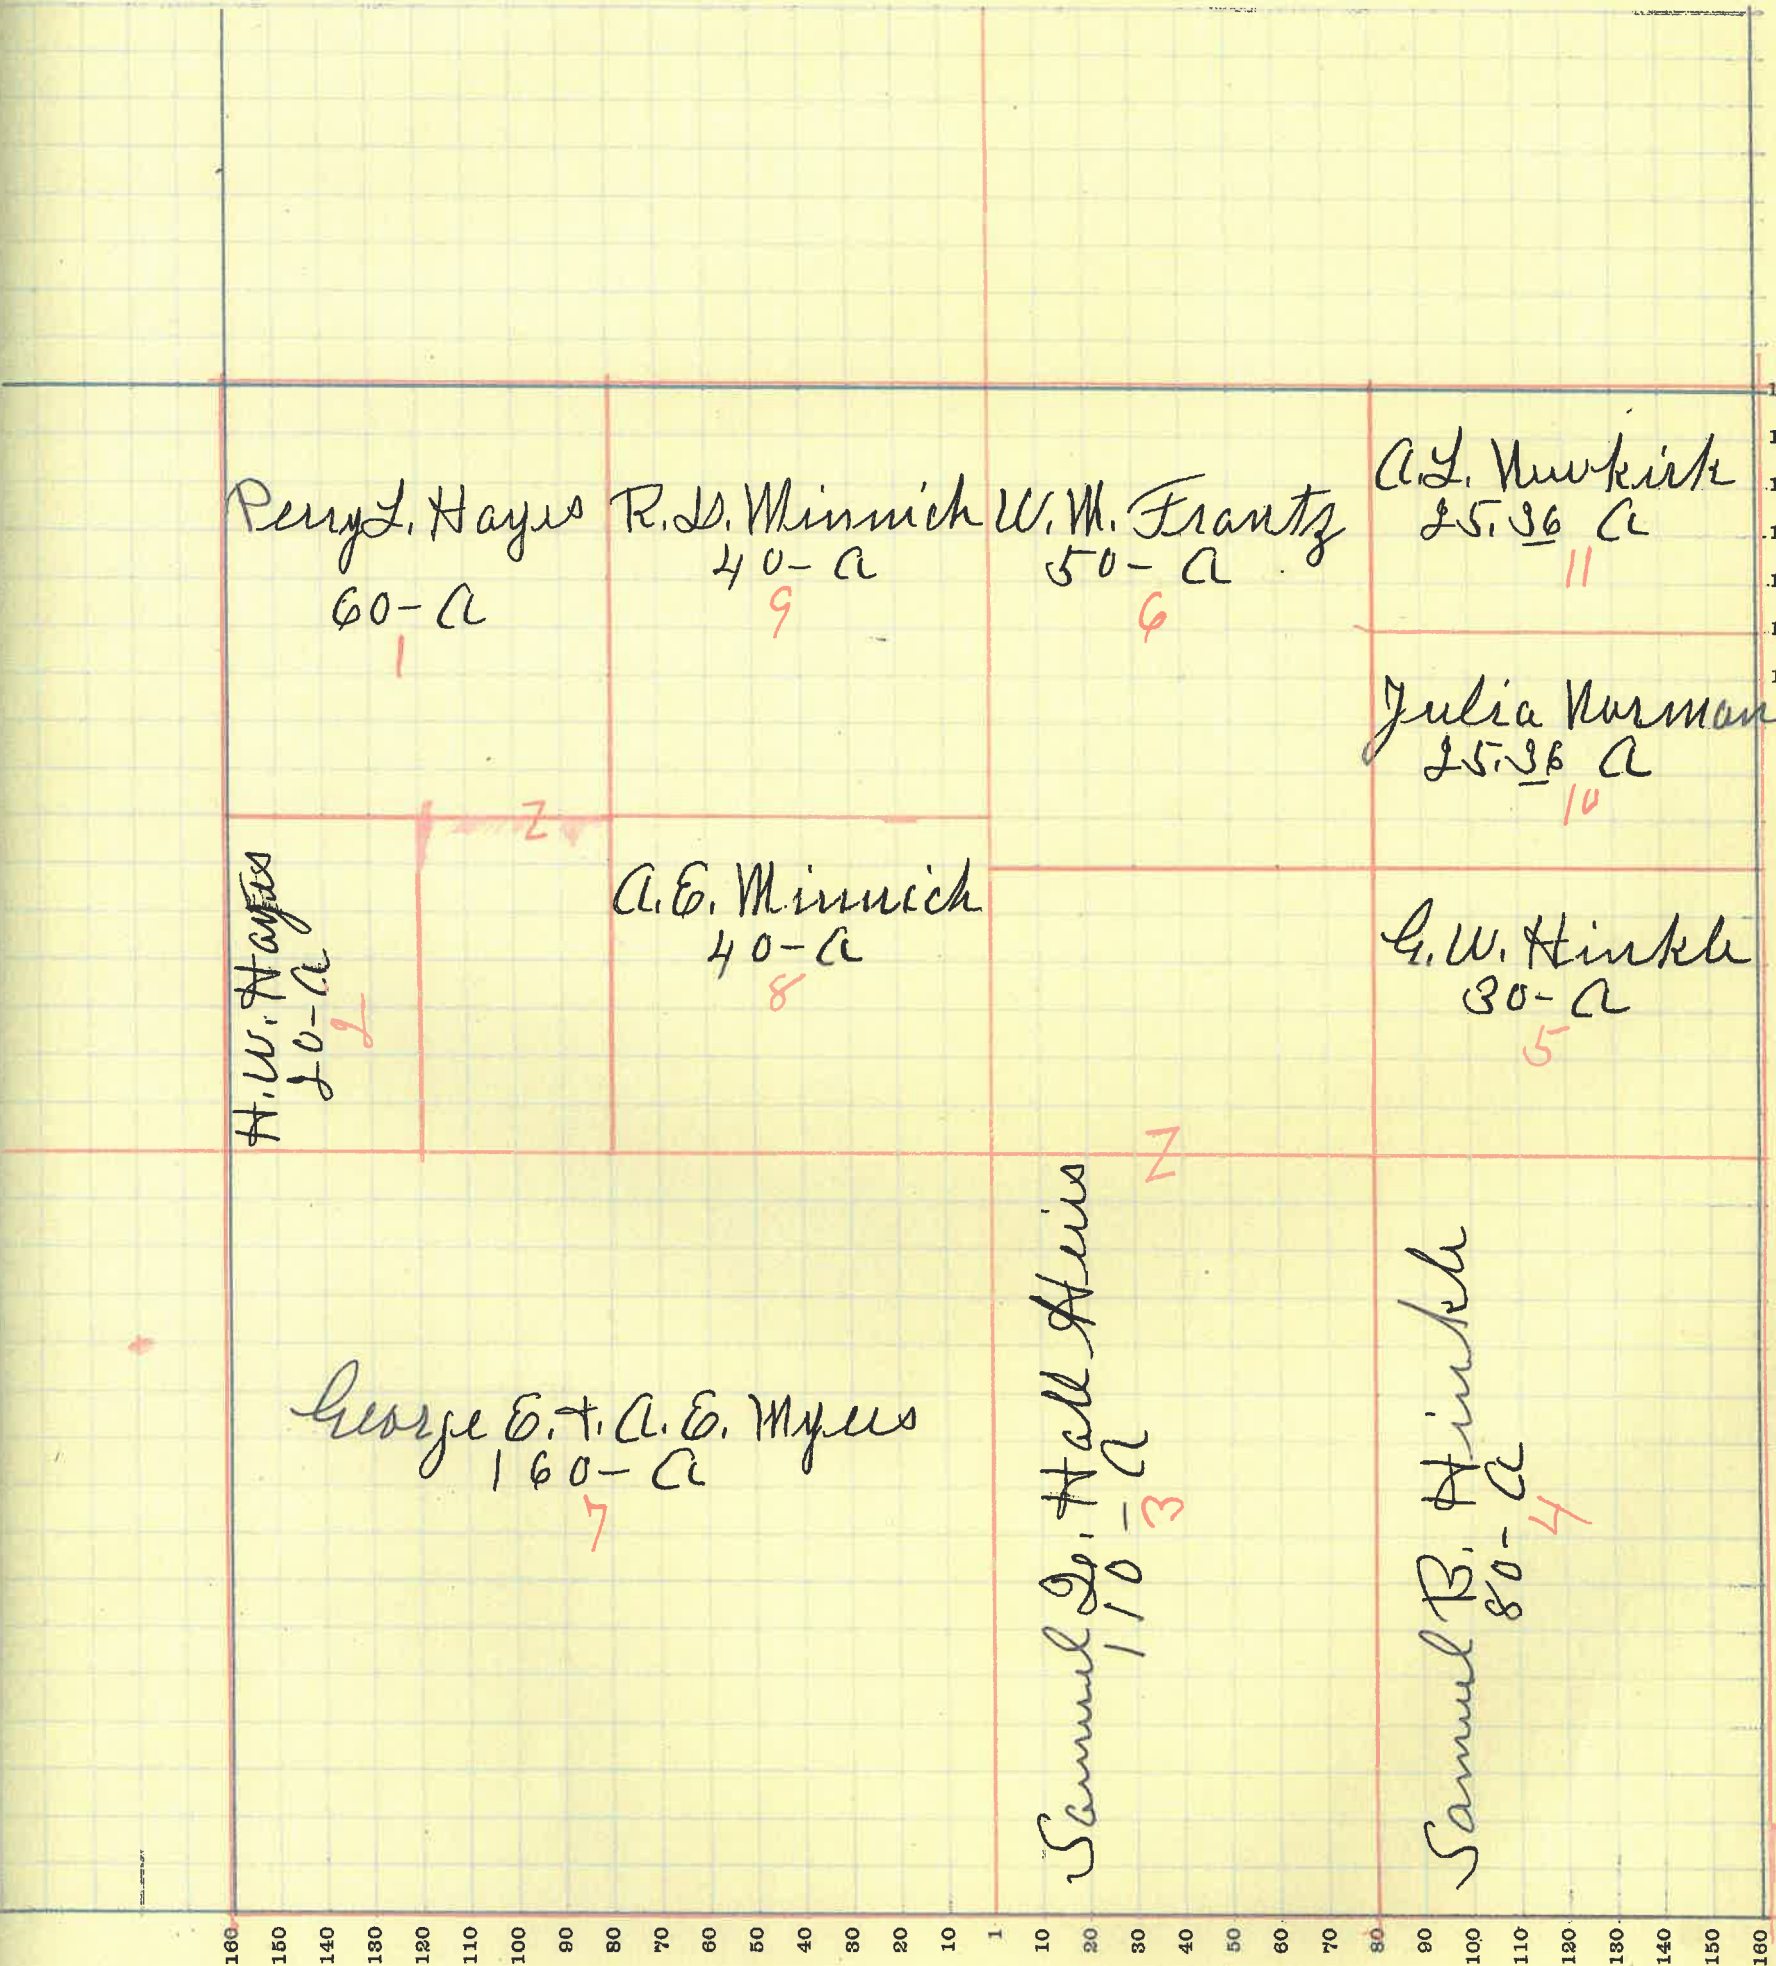 Perry L. Hayes
60-A
1
R. D. Minnich
40-A
9
W. M. Frantz
50-A
6
A. L. Newkirk
25.36 A
11
Julia Norman
25.36 A
10
Z
H. W. Hayes
20-A
2
A. E. Minnich
40-A
8
G. W. Hinkle
30-A
5
Z
George E. + A. E. Myers
160-A
7
Samuel Q. Hall Heirs
110-A
3
Samuel B. Hinkle
80-A
4
160 150 140 130 120 110 100 90 80 70 60 50 40 30 20 10 1 10 20 30 40 50 60 70 80 90 100 110 120 130 140 150 160